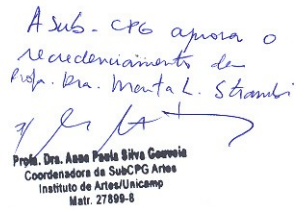 A Sub-CPG aprova o
recredenciamento da
Profa. Dra. Marta L. Strambi
Profa. Dra. Anna Paula Silva Gouveia
Coordenadora da SubCPG Artes
Instituto de Artes/Unicamp
Matr. 27899-8